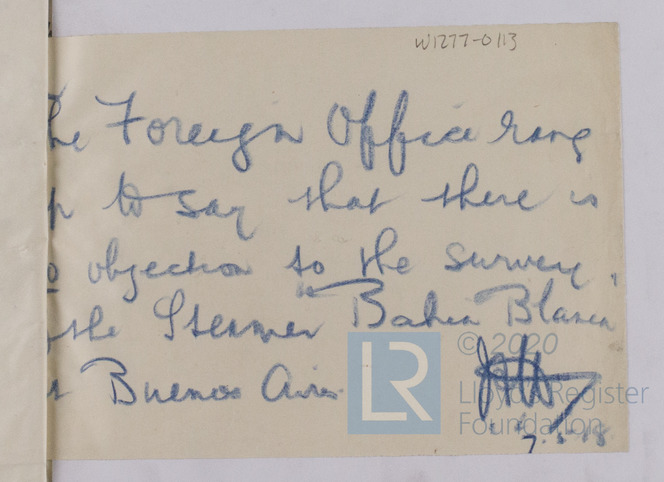 W1277-0113
he Foreign Office rang
p to say that there is
o objection to the survey
the Steamer "Bahia Blanca"
Buenos Aires
LR
© 2020
Lloyd's Register
Foundation